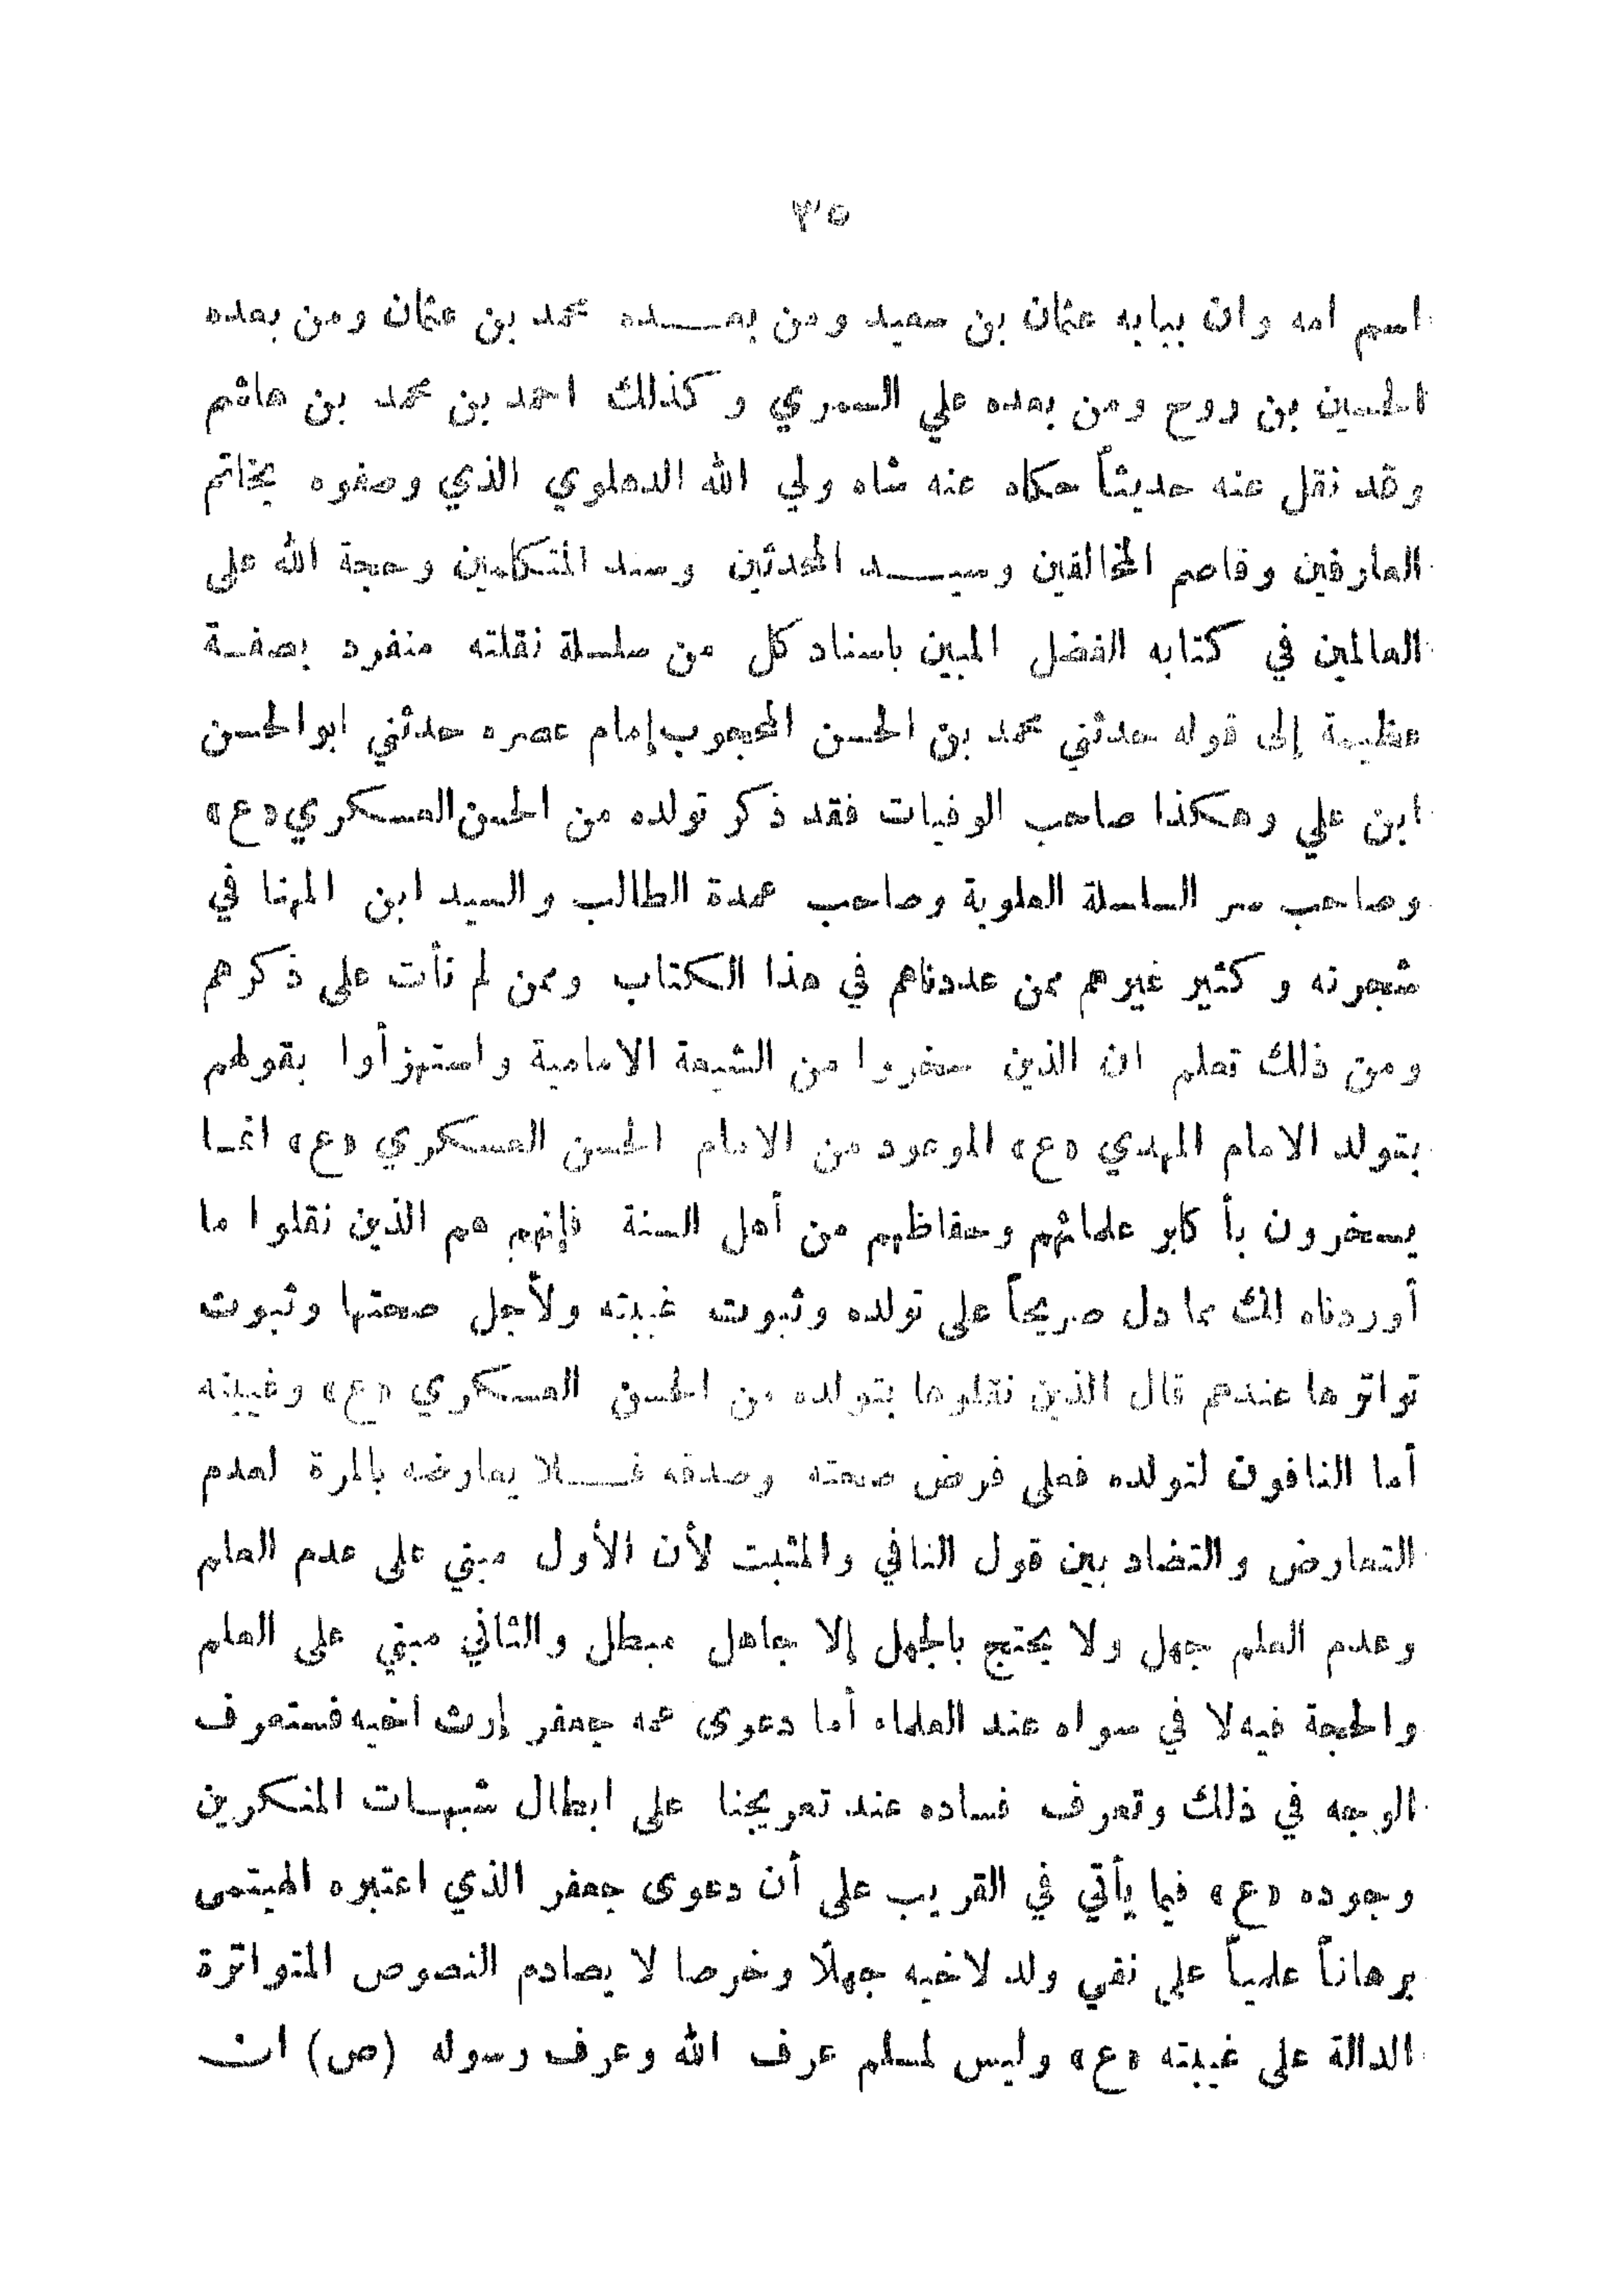 ٣٥
اسم امه وان ببابه عثمان بن سعيد ومن بعـــده محمد بن عثمان ومن بعده
الحسين بن روح ومن بعده علي السمري وكذلك احمد بن محمد بن هاشم
وقد نقل عنه حديثاً حكاه عنه شاه ولي الله الدهلوي الذي وصفوه بخاتم
العارفين وقاصم المخالفين وسيـــد المحدثين وسند المتكلمين وحجة الله على
العالمين في كتابه الفضل المبين باسناد كل من سلسلة نقلته منفرد بصفـة
عظيمة إلى قوله حدثني محمد بن الحسن المحجوب إمام عصره حدثني ابو الحسن
ابن علي وهكذا صاحب الوفيات فقد ذكر تولده من الحسن العسكري «ع»
وصاحب سر السلسلة العلوية وصاحب عمدة الطالب والسيد ابن المهنا في
شجرته وكثير غيرهم ممن عددناهم في هذا الكتاب وممن لم نأت على ذكرهم
ومن ذلك تعلم ان الذين سخروا من الشيعة الامامية واستهزأوا بقولهم
بتولد الامام المهدي «ع» الموعود من الامام الحسن العسكري «ع» انمـا
يسخرون بأكابر علمائهم وحفاظهم من أهل السنة فإنهم هم الذين نقلوا ما
أوردناه لك مما دل صريحاً على تولده وثبوت غيبته ولأجل صحتها وثبوت
تواترها عندهم قال الذين نقلوها بتولده من الحسن العسكري «ع» وغيبته
أما النافون لتولده فعلى فرض صحته وصدقه فـــلا يعارضه بالمرة لعدم
التعارض والتضاد بين قول النافي والمثبت لأن الأول مبني على عدم العلم
وعدم العلم جهل ولا يحتج بالجهل إلا جاهل مبطل والثاني مبني على العلم
والحجة فيه لا في سواه عند العلماء أما دعوى عمه جعفر إرث اخيه فستعرف
الوجه في ذلك وتعرف فساده عند تعريجنا على ابطال شبهـات المنكرين
وجوده «ع» فيما يأتي في القريب على أن دعوى جعفر الذي اعتبره الهيتمى
برهاناً علمياً على نفي ولد لاخيه جهلًا وخرصا لا يصادم النصوص المتواترة
الدالة على غيبته «ع» وليس لمسلم عرف الله وعرف رسوله (ص) ان